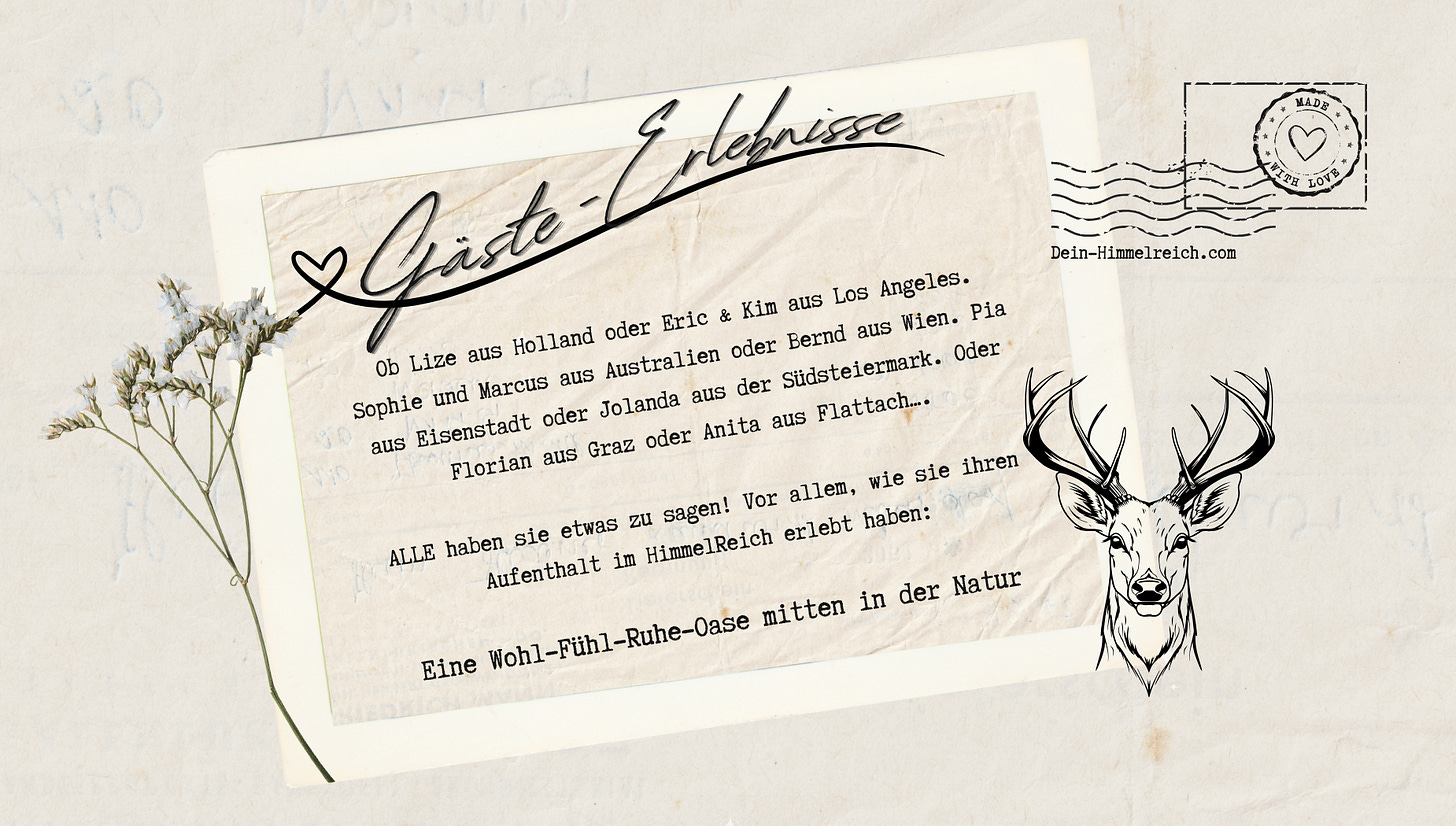 Gäste-Erlebnisse
MADE
WITH LOVE
Dein-Himmelreich.com
Ob Lize aus Holland oder Eric & Kim aus Los Angeles.
Sophie und Marcus aus Australien oder Bernd aus Wien. Pia
aus Eisenstadt oder Jolanda aus der Südsteiermark. Oder
Florian aus Graz oder Anita aus Flattach….
ALLE haben sie etwas zu sagen! Vor allem, wie sie ihren
Aufenthalt im HimmelReich erlebt haben:
Eine Wohl-Fühl-Ruhe-Oase mitten in der Natur